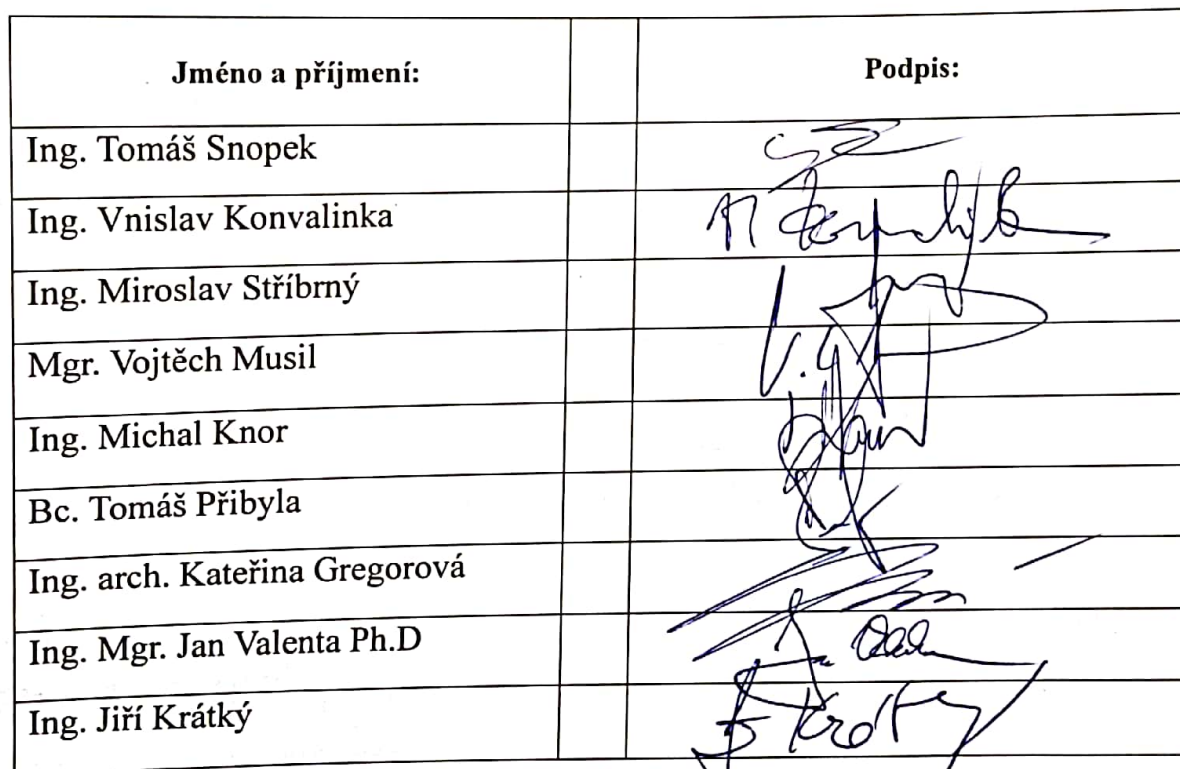 Jméno a příjmení: Podpis:
Ing. Tomáš Snopek
Ing. Vnislav Konvalinka
Ing. Miroslav Stříbrný
Mgr. Vojtěch Musil
Ing. Michal Knor
Bc. Tomáš Přibyla
Ing. arch. Kateřina Gregorová
Ing. Mgr. Jan Valenta Ph.D
Ing. Jiří Krátký